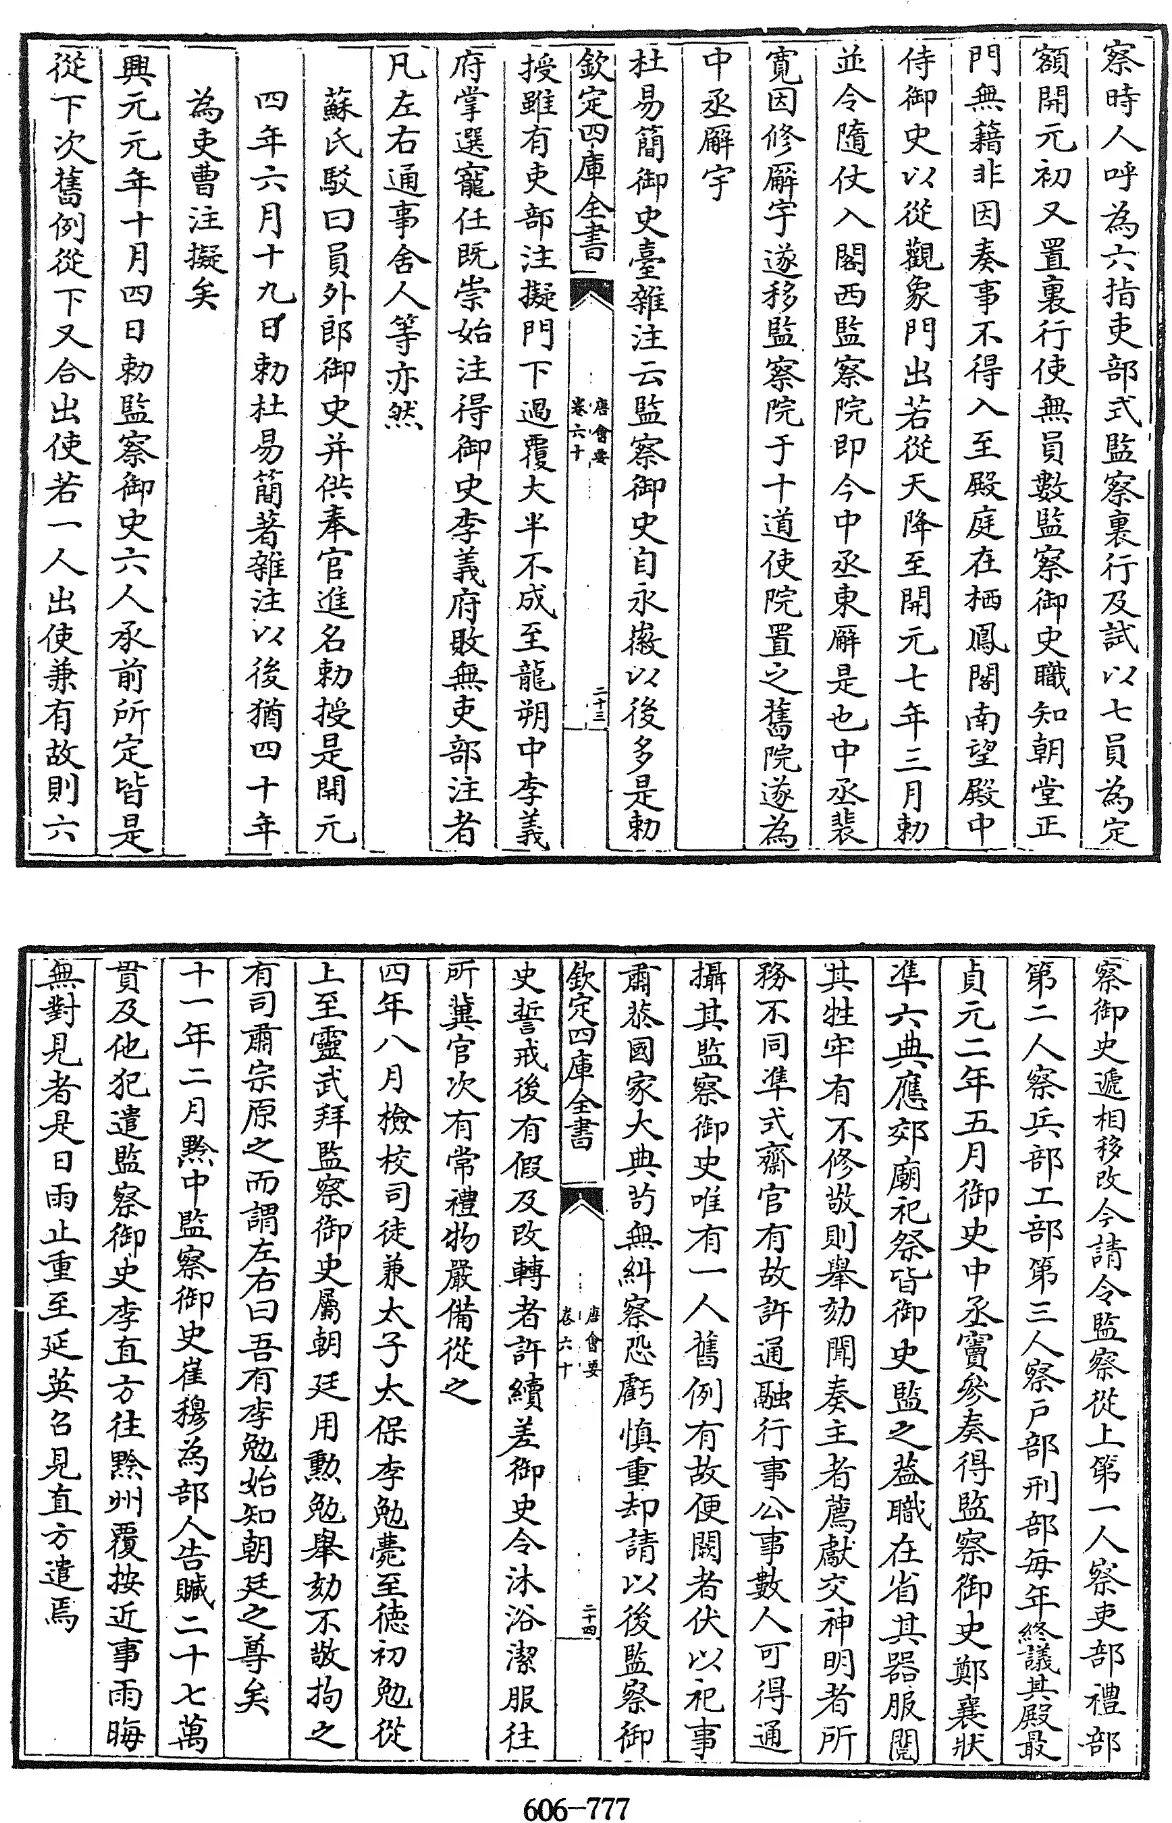 察時人呼為六指吏部式監察裏行及試以七員為定
額開元初又置裏行使無員數監察御史職知朝堂正
門無籍非因奏事不得入至殿庭在栖鳳閣南望殿中
侍御史以從觀象門出若從天降至開元七年三月勅
並令隨仗入閣西監察院即今中丞東廨是也中丞裴
寛因修廨宇遂移監察院于十道使院置之舊院遂為
中丞廨宇
杜易簡御史臺雜注云監察御史自永徽以後多是勅
欽定四庫全書
唐會要
卷六十
二十三
授雖有吏部注擬門下過覆大半不成至龍朔中李義
府掌選寵任既崇始注得御史李義府敗無吏部注者
凡左右通事舍人等亦然
蘇氏駁曰員外郎御史并供奉官進名勅授是開元
四年六月十九日勅杜易簡著雜注以後猶四十年
為吏曹注擬矣
興元元年十月四日勅監察御史六人承前所定皆是
從下次舊例從下又合出使若一人出使兼有故則六
察御史遞相移改今請令監察從上第一人察吏部禮部
第二人察兵部工部第三人察戸部刑部每年終議其殿最
貞元二年五月御史中丞竇參奏得監察御史鄭襄狀
準六典應郊廟祀祭皆御史監之蓋職在省其器服閲
其牲牢有不修敬則舉劾聞奏主者薦獻交神明者所
務不同準式齋官有故許通融行事公事數人可得通
攝其監察御史唯有一人舊例有故便闕者伏以祀事
肅恭國家大典茍無糾察恐虧慎重却請以後監察御
欽定四庫全書
唐會要
卷六十
二十四
史誓戒後有假及改轉者許續差御史令沐浴潔服往
所冀官次有常禮物嚴備從之
四年八月檢校司徒兼太子太保李勉薨至德初勉從
上至靈武拜監察御史屬朝廷用勳勉舉劾不敬拘之
有司肅宗原之而謂左右曰吾有李勉始知朝廷之尊矣
十一年二月黔中監察御史崔穆為部人告贓二十七萬
貫及他犯遣監察御史李直方往黔州覆按近事雨晦
無對見者是日雨止重至延英召見直方遣焉
606-777